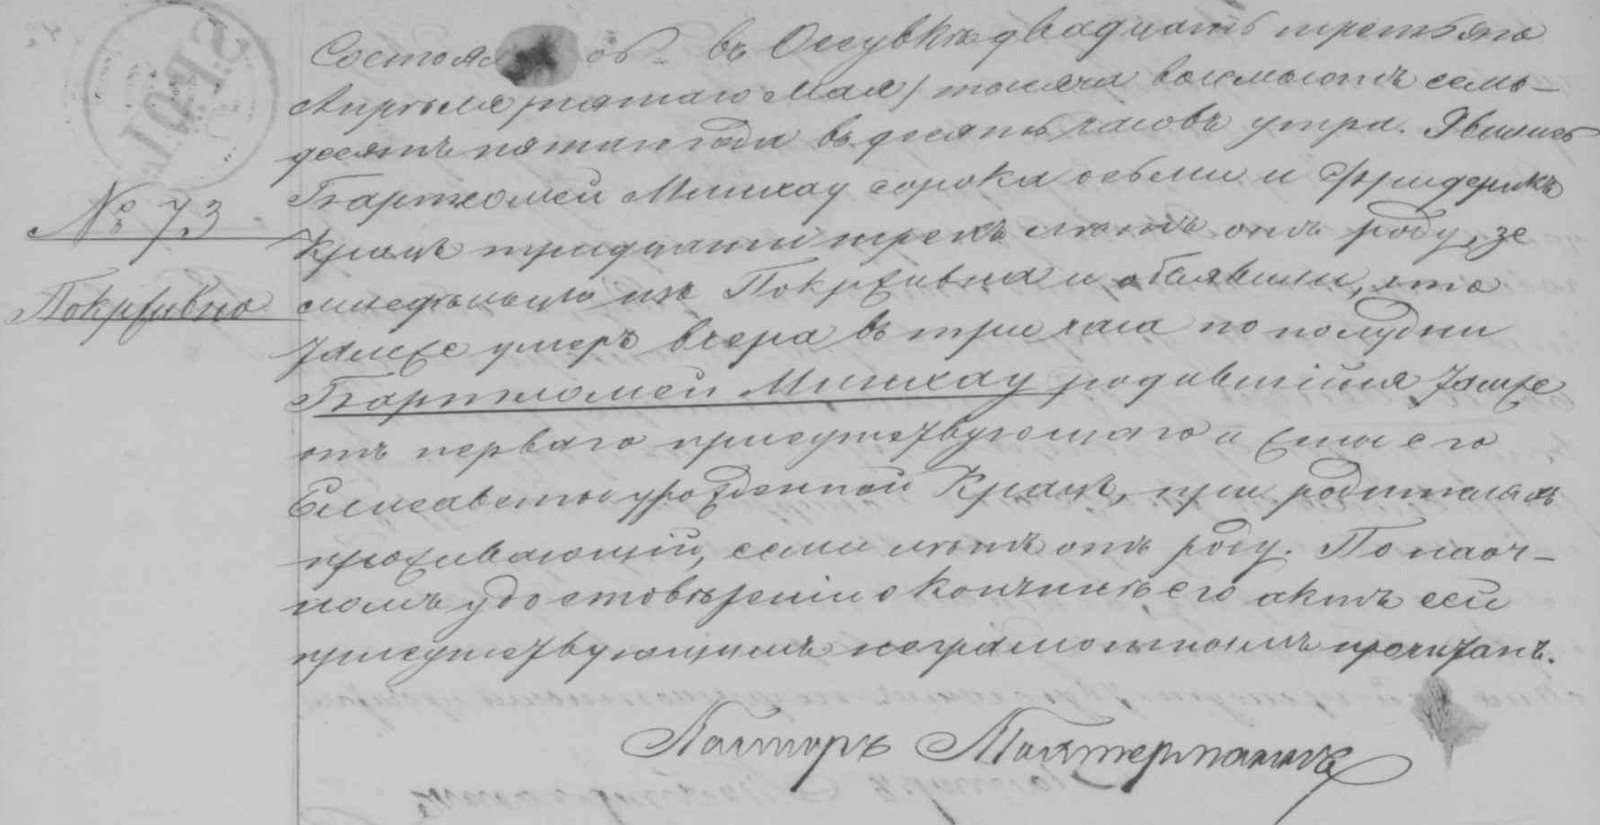 № 73
Покрживно
Состоя об въ Оссувкѣ двадцать третьяго
Апрѣля /пятаго Мая/ тысяча восемьсотъ семь-
десятъ пятаго года въ десять часовъ утра. Явились
Бартломей Минхау сорока осьми и Фридерикъ
Крацъ тридцати трехъ лѣтъ отъ роду, зе
мледѣльцы изъ Покрживна и объявили, что
тамже умеръ вчера въ три часа по полудни
Бартломей Минхау родившійся тамже
отъ перваго присутствующаго и жены его
Елисаветы урожденной Крацъ, при родителяхъ
проживающій, семи лѣтъ отъ роду. По наоч-
номъ удостовѣреніи о кончинѣ его актъ сей
присутствующимъ неграмотнымъ прочитанъ.
Пасторъ